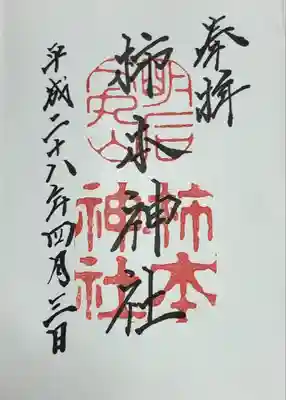 奉拝
柿本神社
平成二十八年四月三日
柿本
神社